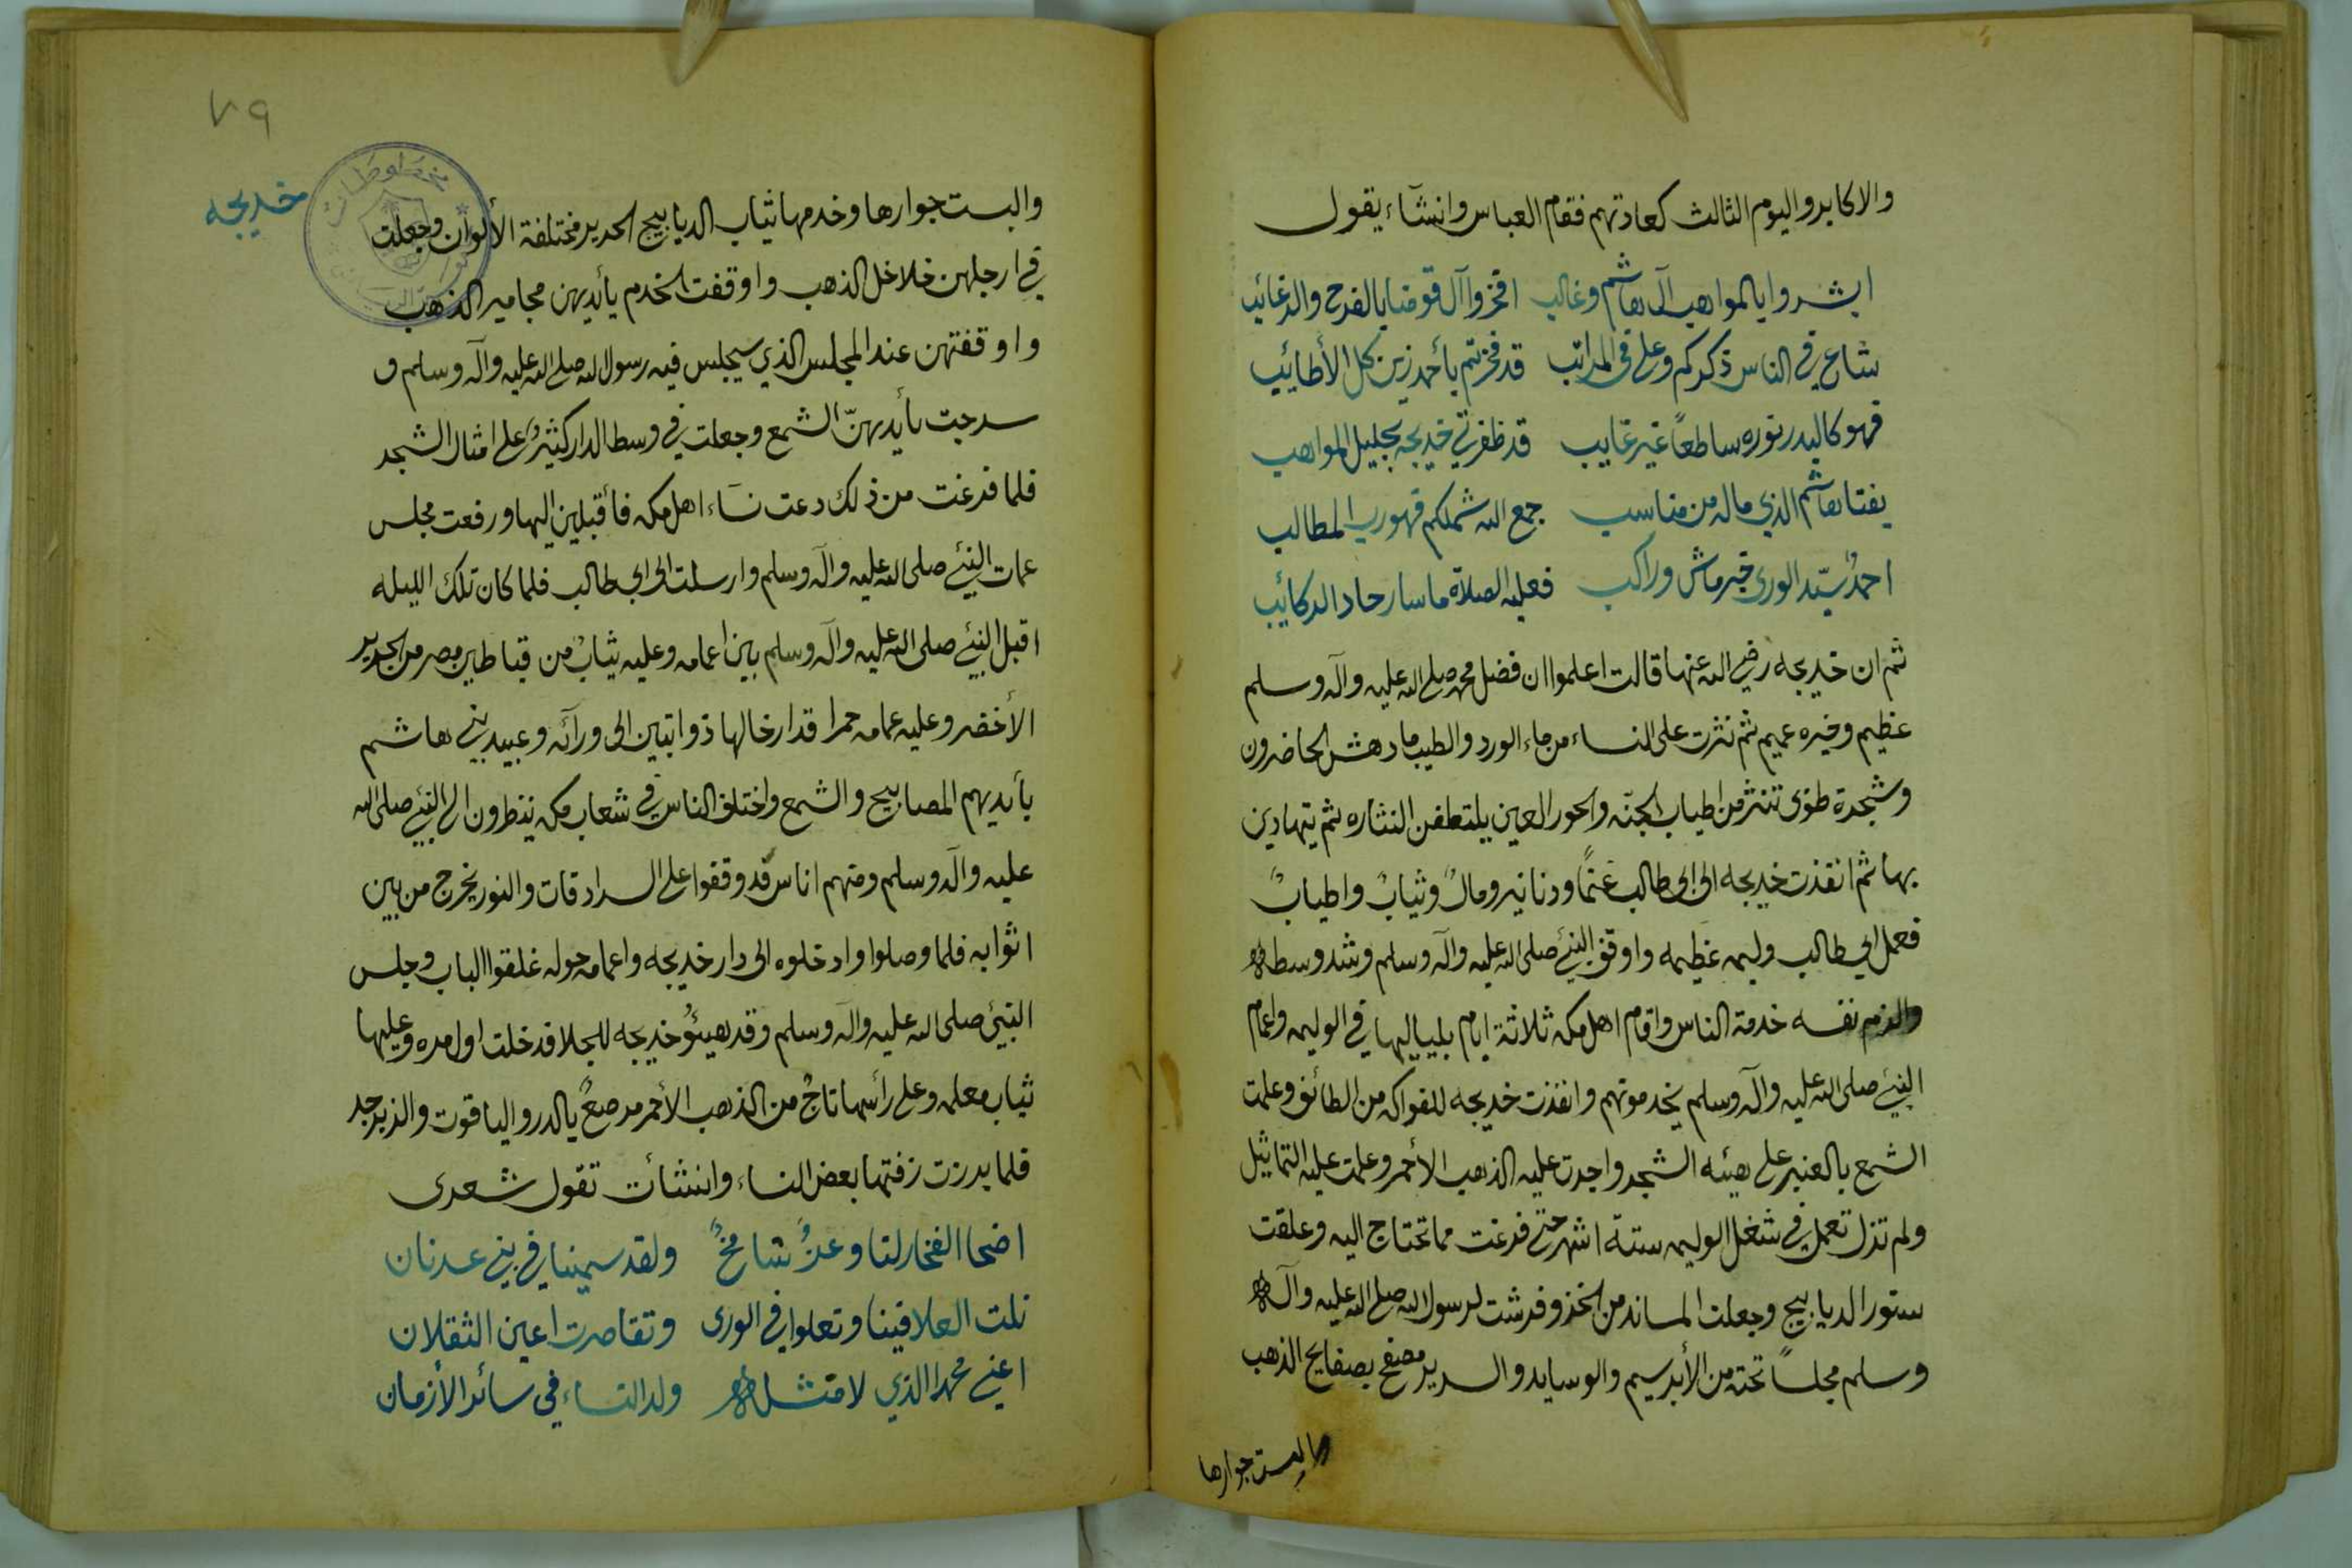 والاكابر واليوم الثالث كعادتهم فقام العباس وانشآء يقول
ابشروا بالمواهب آل هاشم وغالب افخروا آل قومنا بالفرح والرغائب
شاع في الناس ذكركم وعلى في المراتب قد فخرتم بأحمد زين كل الأطائيب
فهو كالبدر نوره ساطعاً غير غايب قد ظفرتي خديجه بجليل المواهب
بفتا هاشم الذي ماله من مناسب جمع الله شملكم فهو رب المطالب
احمدٌ سيّد الورى خير ماش وراكب فعليه الصلاة ما سار حاد الركائب
ثم ان خديجه رضي الله عنها قالت اعلموا ان فضل محمد صلى الله عليه وآله وسلم
عظيم وخيره عميم ثم نثرت على النساء من ماء الورد والطيب ما دهش الحاضرون
وشجرة طوبى تنثر من اطياب الجنه والحور العين يلتطفن النثاره ثم يتهادين
بها ثم انقذت خديجه الى ابي طالب غنماً ودنانير ومالٌ وثيابٌ واطيابٌ
فعمل ابي طالب وليمه عظيمه واوقف النبئ صلى الله عليه وآله وسلم وشد وسطه
والزم نفسه خدمة الناس واقام اهل مكه ثلاثة ايام بلياليها في الوليمه واعمام
النبئ صلى الله عليه وآله وسلم يخدمونهم وانفذت خديجه للفواكه من الطائف وعلمت
الشمع بالعنبر على هيئه الشجر واجرت عليه الذهب الأحمر وعلمت عليه التماثيل
ولم تزل تعمل في شغل الوليمه ستة اشهر حتى فرغت مما تحتاج اليه وعلقت
ستور الديابيج وجعلت المساند من الخز وفرشت لرسول الله صلى الله عليه وآله
وسلم مجلساً تحته من الأبرسيم والوسايد والسرير مصفح بصفايح الذهب
والبست جوارها
٧٩
خديجه
والبست جوارها وخدمها ثياب الديابيج الحرير مختلفة الألوان وجعلت
في ارجلهن خلاخل الذهب واوقفت الخدم بأيديهن مجامير الذهب
واوقفتهن عند المجلس الذي سيجلس فيه رسول الله صلى الله عليه وآله وسلم و
سرجت بأيديهنّ الشمع وجعلت في وسط الدار كثيرٌ على امثال الشجر
فلما فرغت من ذلك دعت نسآء اهل مكه فأقبلين اليها ورفعت مجلس
عمات النبئ صلى الله عليه وآله وسلم وارسلت الى ابي طالب فلما كان تلك الليله
اقبل النبئ صلى الله عليه وآله وسلم بين اعمامه وعليه ثيابٌ من قباطير مصر من الحرير
الأخضر وعليه عمامه حمرا قد ارخا لها ذوابتين الى ورآئه وعبيد بني هاشم
بأيديهم المصابيح والشمع واختلف الناس في شعاب مكه ينظرون الى النبئ صلى الله
عليه وآله وسلم ومنهم اناس قد وقفوا على السرادقات والنور يخرج من بين
اثوابه فلما وصلوا وادخلوه الى دار خديجه واعمامه حوله غلقوا الباب وجلس
النبئ صلى الله عليه وآله وسلم وقد هيئوُ خديجه للجلا فدخلت اول مره وعليها
ثياب معلمه وعلى رأسها تاجٌ من الذهب الأحمر مرصعٌ بالدر والياقوت والزبرجد
فلما برزت زفتها بعض النساء وانشأت تقول شعرى
اضحا الفخار لنا وعزٌ شامخٌ ولقد سمينا في بني عدنان
نلت العلا فينا وتعلوا في الورى وتقاصرت اعين الثقلان
اعني محمدا الذي لا مثله ولد النساء في سائر الأزمان